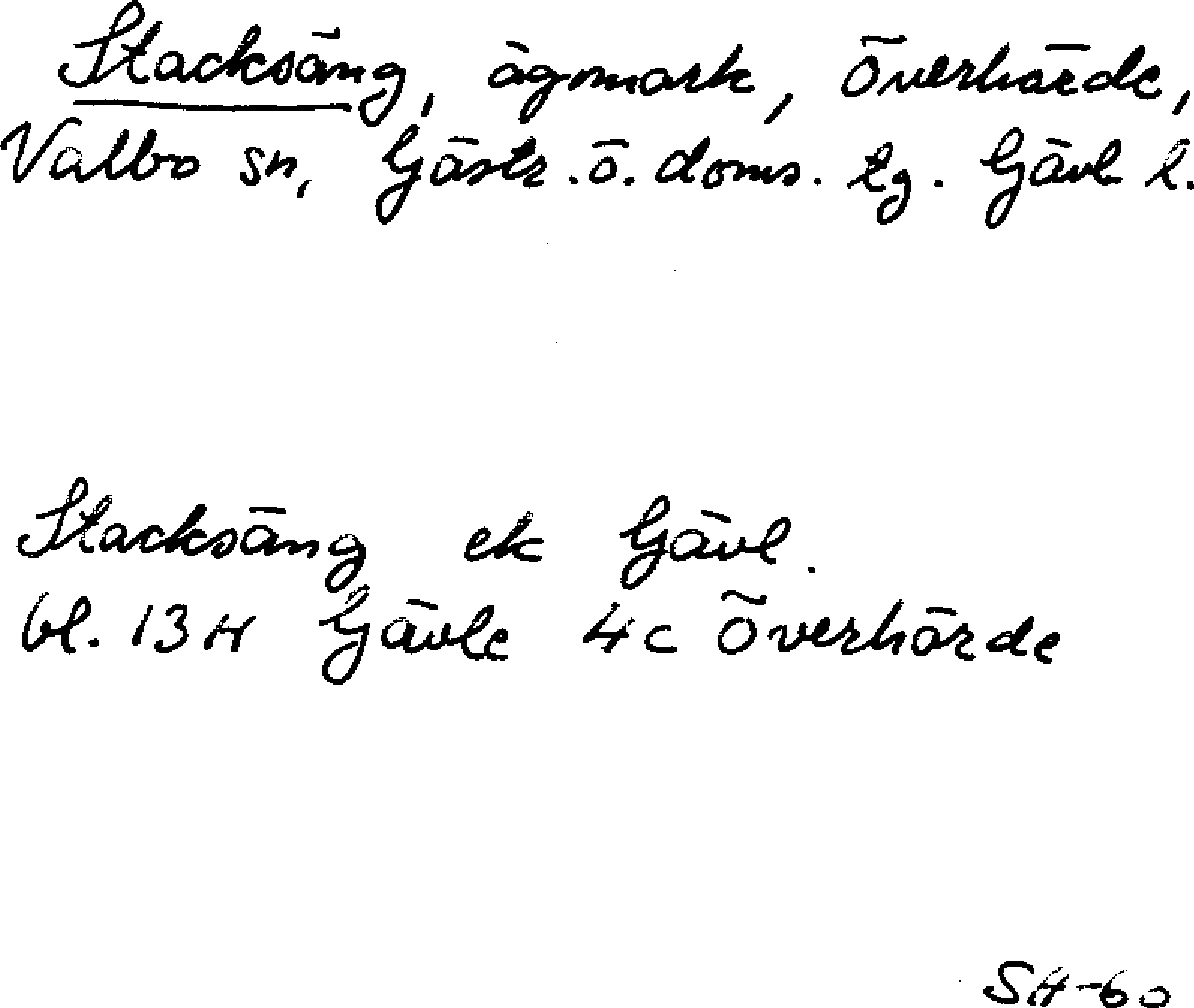 Stacksäng, ägomark, Överhärde,
Valbo sn, Gästr. ö. doms. tg. Gävl l.
Stacksäng ek Gävl.
bl. 13H Gävle 4c Överhärde
SH-60